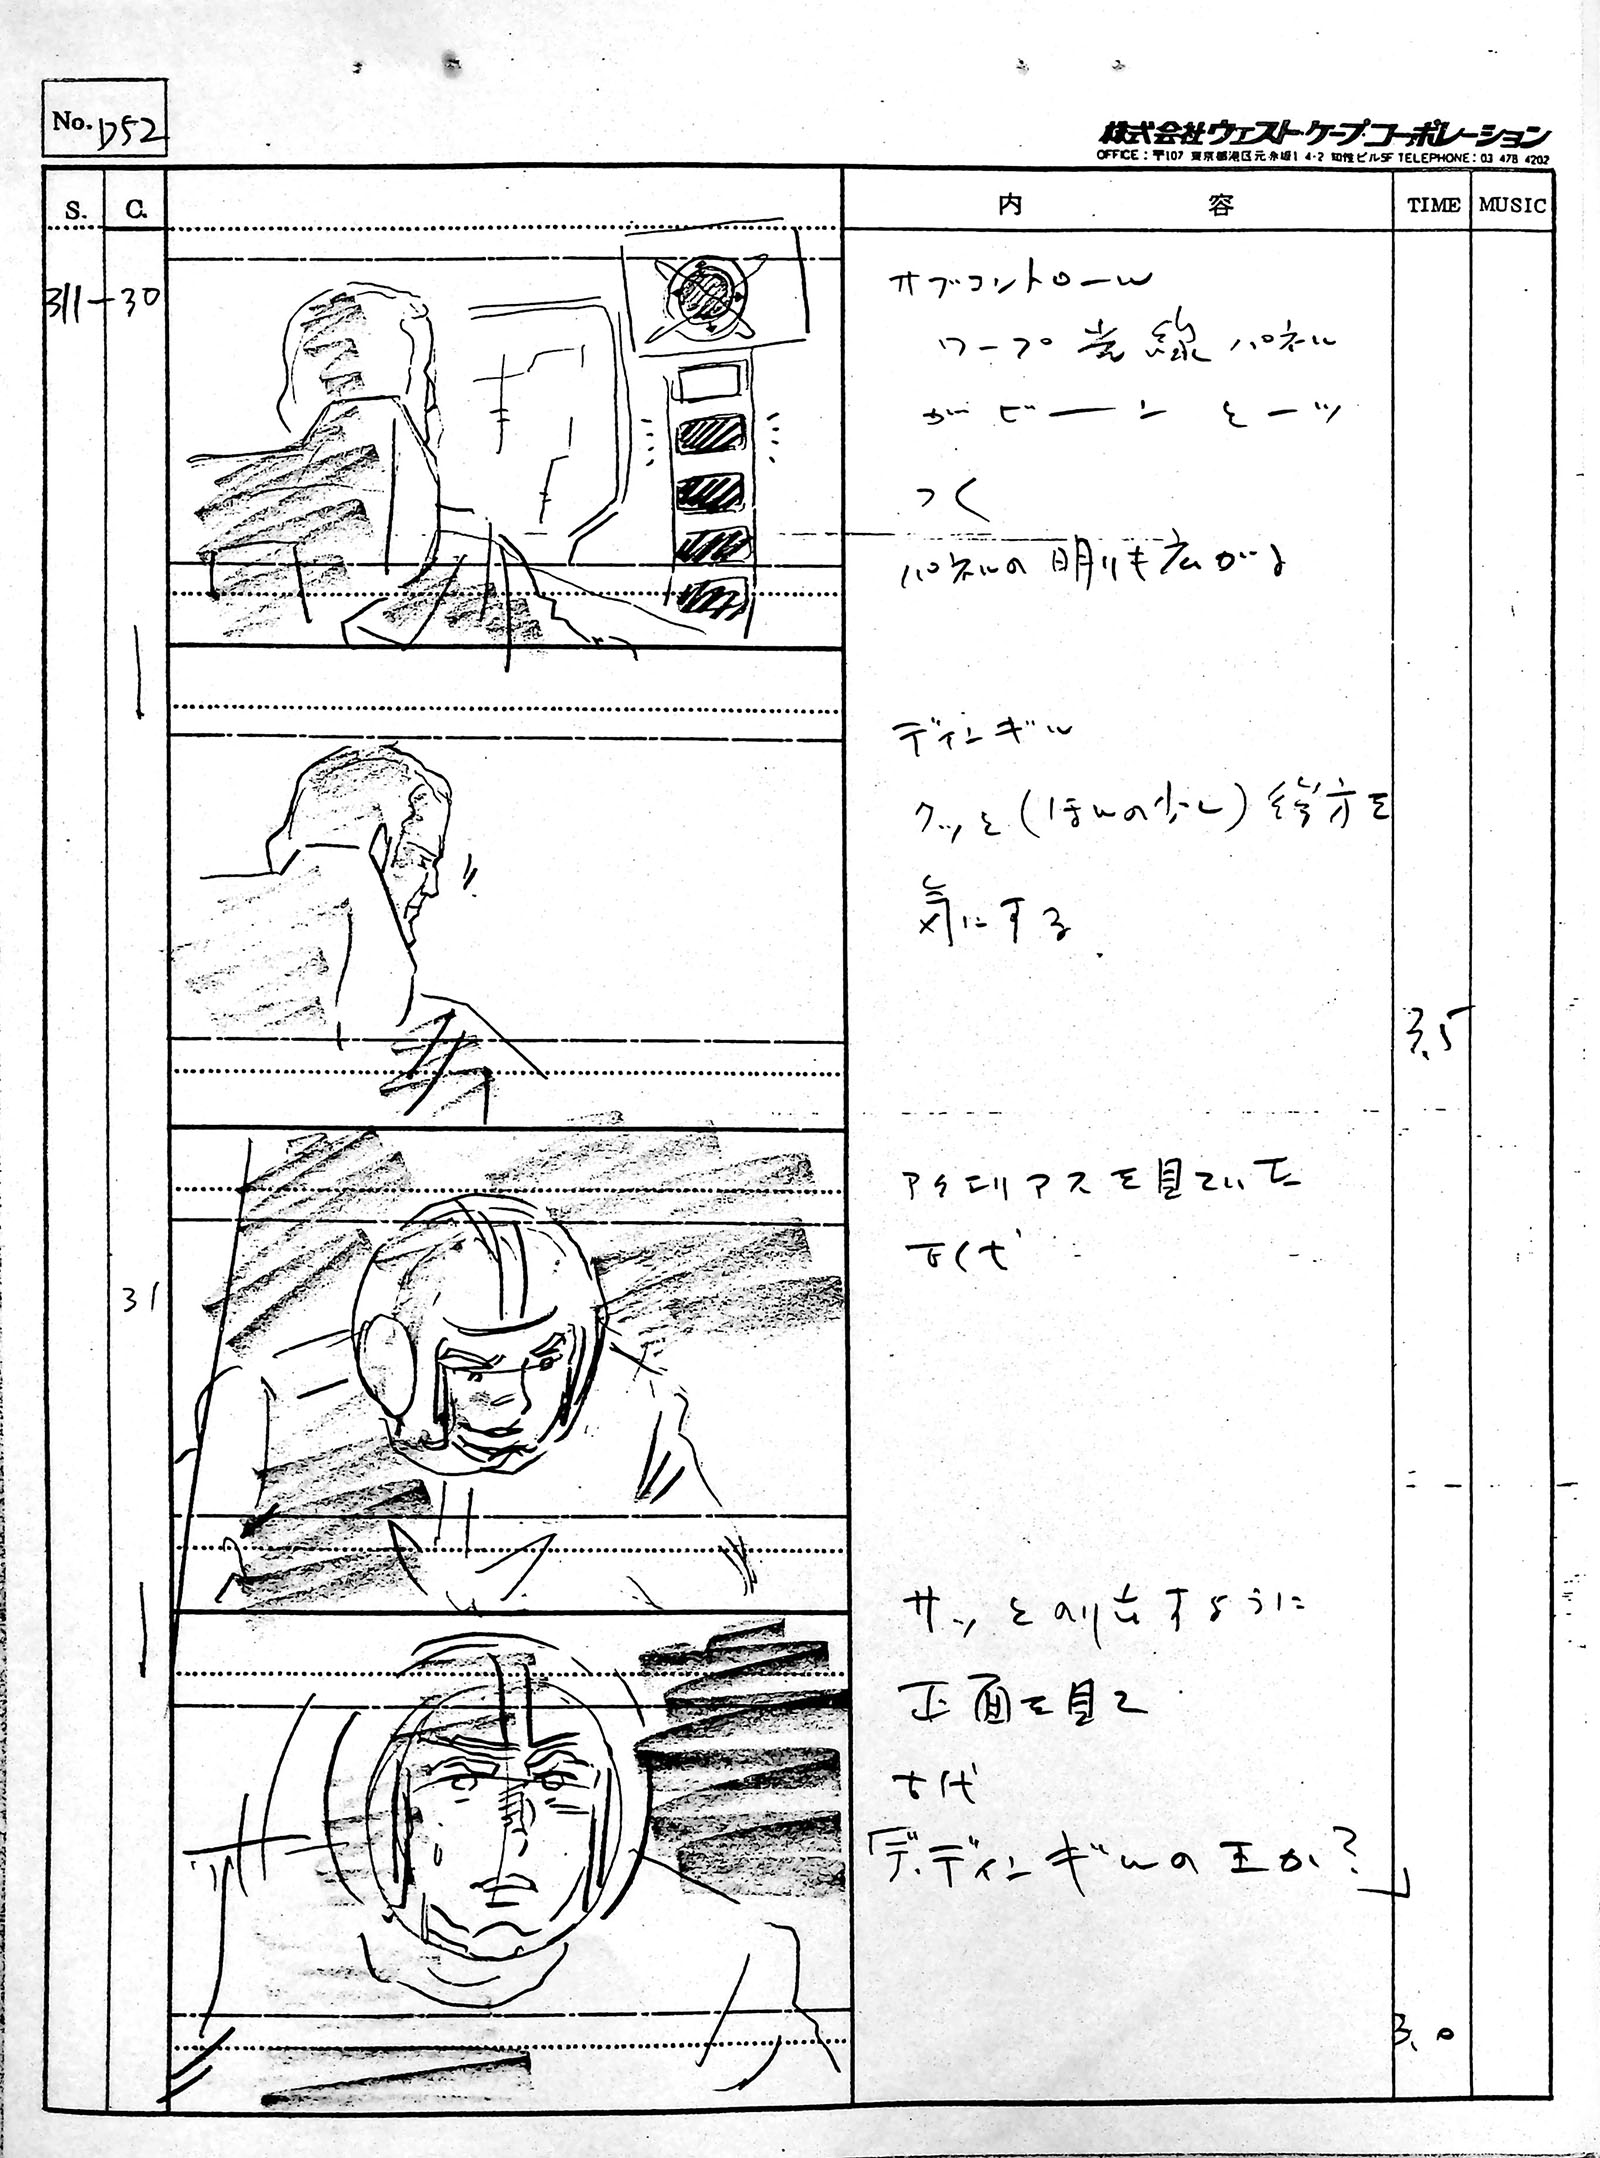 No. D52
株式会社ウェスト・ケープ・コーポレーション
OFFICE：〒107 東京都港区元赤坂1 4-2 知性ビル5F TELEPHONE：03 478 4202
S. C. 内容 TIME MUSIC
311-30
サブコントロール
ワープ光線パネル
がビーンと一ツ
つく
パネルの明りも広がる
ディンギル
クッと(ほんの少し)後方を
気にする
3.5
31
アクエリアスを見ていた
古代
サッと のり出すように
正面を見て
古代
「デ、ディンギルの王か？」
3.0